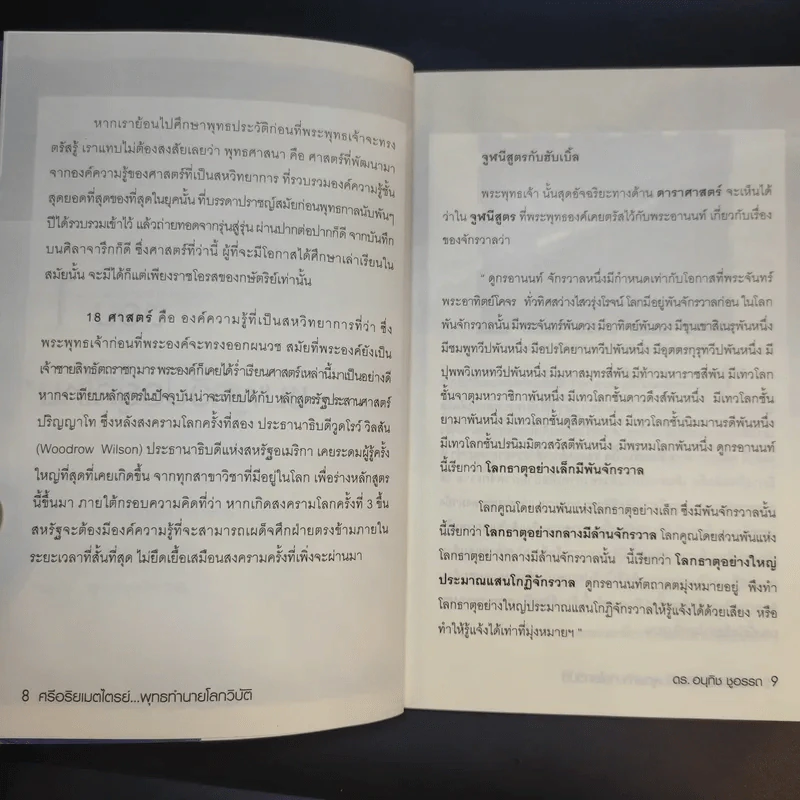 หากเราย้อนไปศึกษาพุทธประวัติก่อนที่พระพุทธเจ้าจะทรง
ตรัสรู้ เราแทบไม่ต้องสงสัยเลยว่า พุทธศาสนา คือ ศาสตร์ที่พัฒนามา
จากองค์ความรู้ของศาสตร์ที่เป็นสหวิทยาการ ที่รวบรวมองค์ความรู้ชั้น
สุดยอดที่สุดของที่สุดในยุคนั้น ที่บรรดาปราชญ์สมัยก่อนพุทธกาลนับพันๆ
ปีได้รวบรวมเข้าไว้ แล้วถ่ายทอดจากรุ่นสู่รุ่น ผ่านปากต่อปากก็ดี จากบันทึก
บนศิลาจารึกก็ดี ซึ่งศาสตร์ที่ว่านี้ ผู้ที่จะมีโอกาสได้ศึกษาเล่าเรียนใน
สมัยนั้น จะมีได้ก็แต่เพียงราชโอรสของกษัตริย์เท่านั้น
18 ศาสตร์ คือ องค์ความรู้ที่เป็นสหวิทยาการที่ว่า ซึ่ง
พระพุทธเจ้าก่อนที่พระองค์จะทรงออกผนวช สมัยที่พระองค์ยังเป็น
เจ้าชายสิทธัตถราชกุมาร พระองค์ก็เคยได้ร่ำเรียนศาสตร์เหล่านี้มาเป็นอย่างดี
หากจะเทียบหลักสูตรในปัจจุบัน น่าจะเทียบได้กับ หลักสูตรรัฐประสานศาสตร์
ปริญญาโท ซึ่งหลังสงครามโลกครั้งที่สอง ประธานาธิบดีวูดโรว์ วิลสัน
(Woodrow Wilson) ประธานาธิบดีแห่งสหรัฐอเมริกา เคยระดมผู้รู้ครั้ง
ใหญ่ที่สุดที่เคยเกิดขึ้น จากทุกสาขาวิชาที่มีอยู่ในโลก เพื่อร่างหลักสูตร
นี้ขึ้นมา ภายใต้กรอบความคิดที่ว่า หากเกิดสงครามโลกครั้งที่ 3 ขึ้น
สหรัฐจะต้องมีองค์ความรู้ที่จะสามารถเผด็จศึกฝ่ายตรงข้ามภายใน
ระยะเวลาที่สั้นที่สุด ไม่ยืดเยื้อเสมือนสงครามครั้งที่เพิ่งจะผ่านมา
8 ศรีอริยเมตไตรย์...พุทธทำนายโลกวิบัติ
จูฬนีสูตรกับฮับเบิ้ล
พระพุทธเจ้า นั้นสุดอัจฉริยะทางด้าน ดาราศาสตร์ จะเห็นได้
ว่าใน จูฬนีสูตร ที่พระพุทธองค์เคยตรัสไว้กับพระอานนท์ เกี่ยวกับเรื่อง
ของจักรวาลว่า
" ดูกรอานนท์ จักรวาลหนึ่งมีกำหนดเท่ากับโอกาสที่พระจันทร์
พระอาทิตย์โคจร ทั่วทิศสว่างไสวรุ่งโรจน์ โลกมีอยู่พันจักรวาลก่อน ในโลก
พันจักรวาลนั้น มีพระจันทร์พันดวง มีอาทิตย์พันดวง มีขุนเขาสิเนรุพันหนึ่ง
มีชมพูทวีปพันหนึ่ง มีอปรโคยานทวีปพันหนึ่ง มีอุตตรกุรุทวีปพันหนึ่ง มี
ปุพพวิเทหทวีปพันหนึ่ง มีมหาสมุทรสี่พัน มีท้าวมหาราชสี่พัน มีเทวโลก
ชั้นจาตุมหาราชิกาพันหนึ่ง มีเทวโลกชั้นดาวดึงส์พันหนึ่ง มีเทวโลกชั้น
ยามาพันหนึ่ง มีเทวโลกชั้นดุสิตพันหนึ่ง มีเทวโลกชั้นนิมมานรดีพันหนึ่ง
มีเทวโลกชั้นปรนิมมิตวสวัสตีพันหนึ่ง มีพรหมโลกพันหนึ่ง ดูกรอานนท์
นี้เรียกว่า โลกธาตุอย่างเล็กมีพันจักรวาล
โลกคูณโดยส่วนพันแห่งโลกธาตุอย่างเล็ก ซึ่งมีพันจักรวาลนั้น
นี้เรียกว่า โลกธาตุอย่างกลางมีล้านจักรวาล โลกคูณโดยส่วนพันแห่ง
โลกธาตุอย่างกลางมีล้านจักรวาลนั้น นี้เรียกว่า โลกธาตุอย่างใหญ่
ประมาณแสนโกฏิจักรวาล ดูกรอานนท์ตถาคตมุ่งหมายอยู่ พึงทำ
โลกธาตุอย่างใหญ่ประมาณแสนโกฏิจักรวาลให้รู้แจ้งได้ด้วยเสียง หรือ
ทำให้รู้แจ้งได้เท่าที่มุ่งหมายฯ "
ดร. อนุทิช ชูอรรถ 9